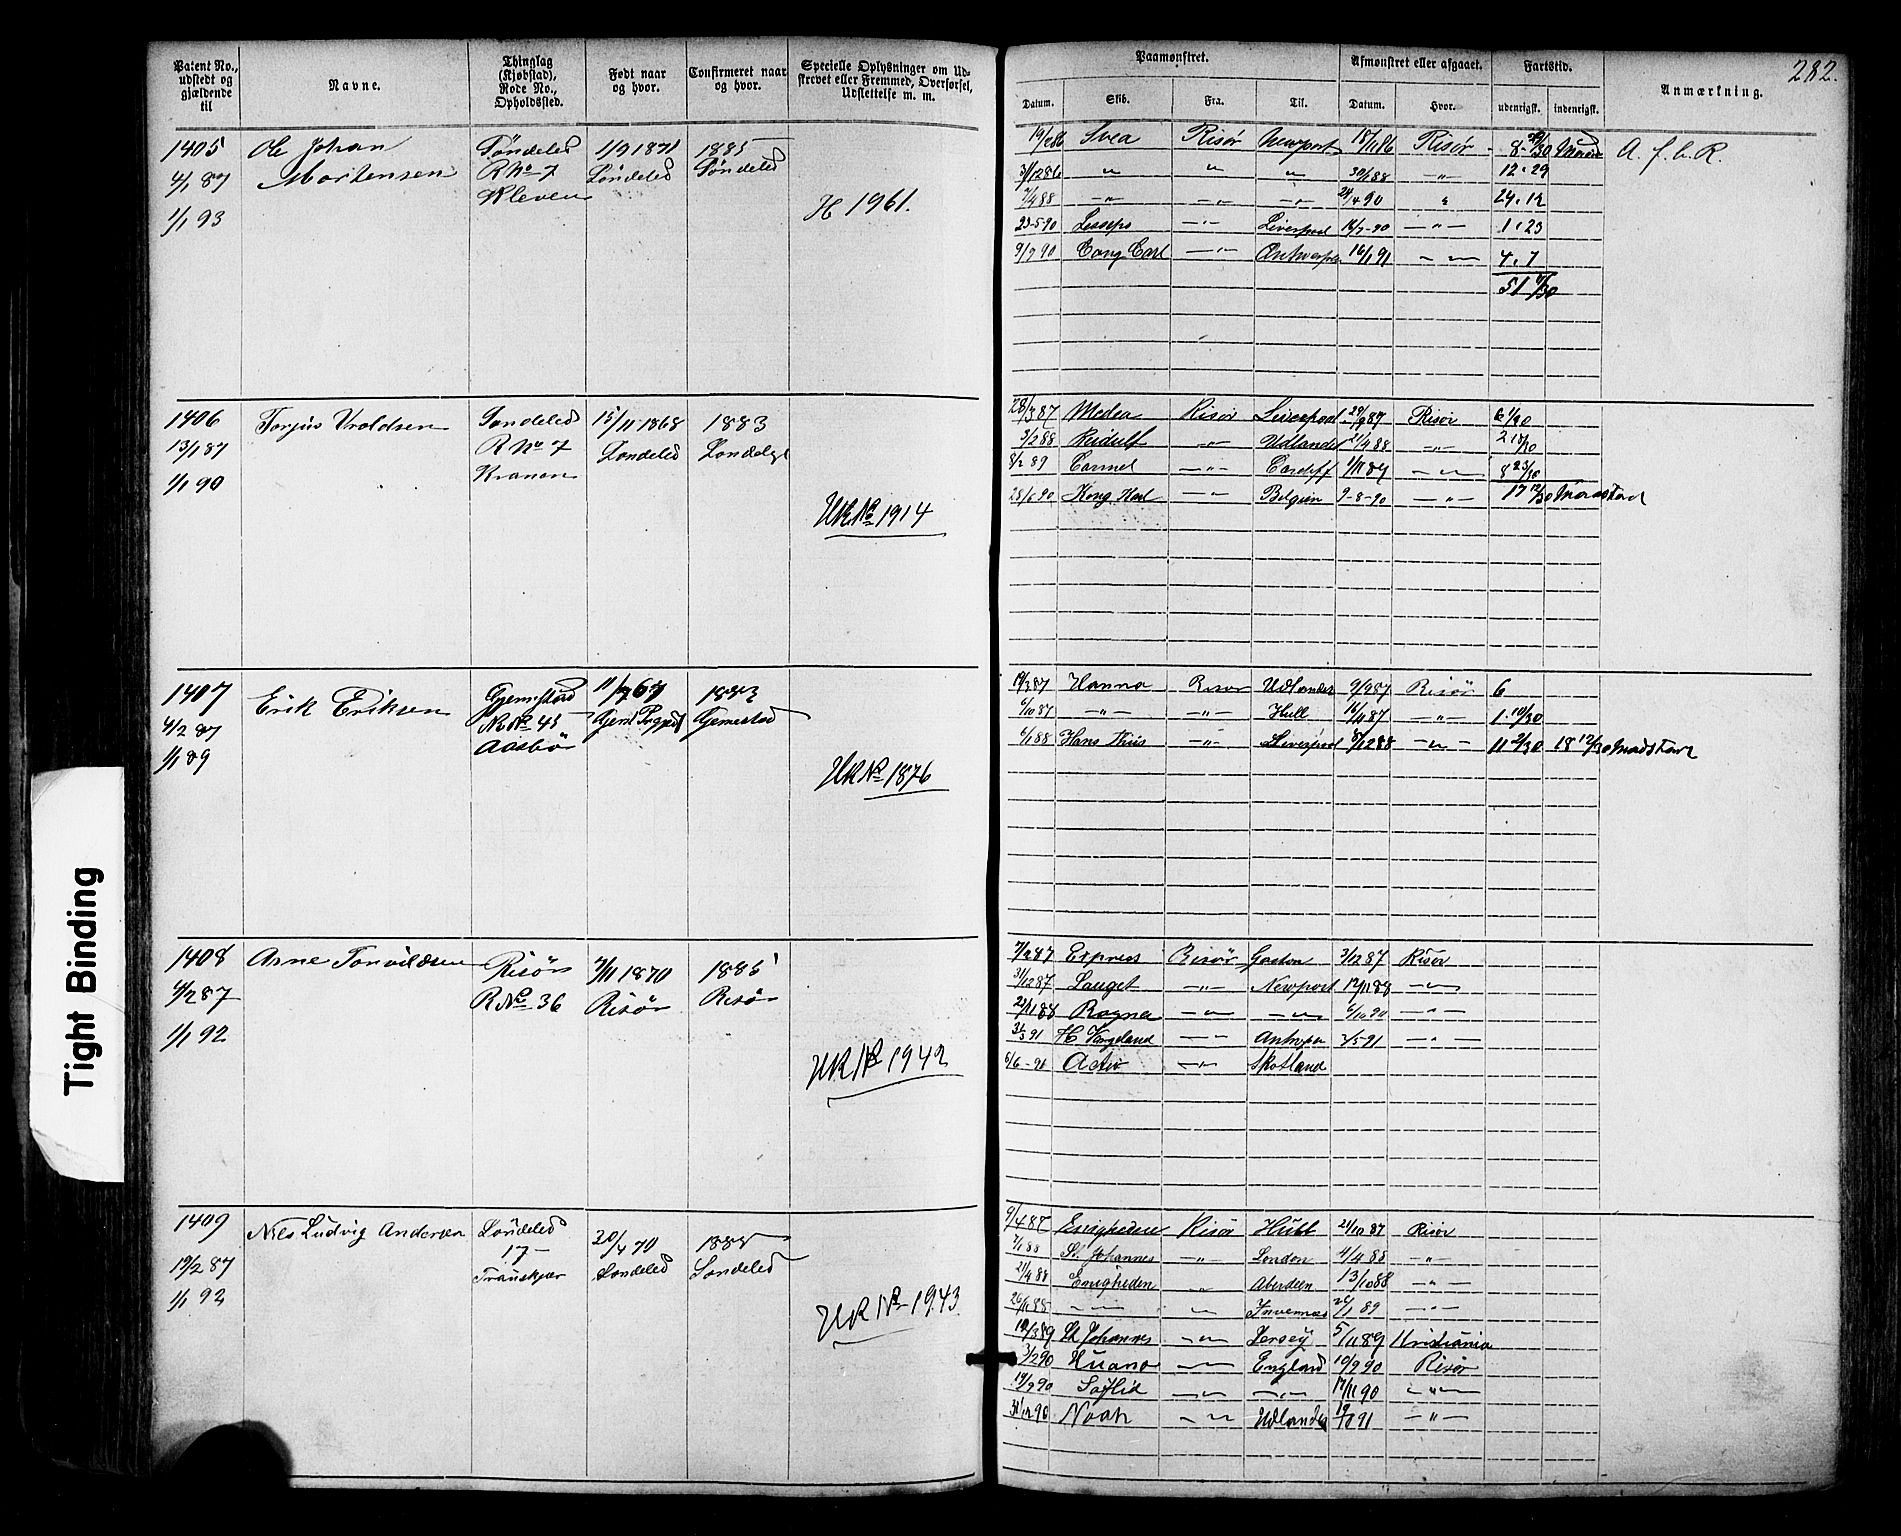 282.
Patent No., udstedt og gjældende til
Navne.
Thinglag (Kjøbstad), Rode No., Opholdssted.
Født naar og hvor.
Confirmeret naar og hvor.
Specielle Oplysninger om Udskrevet eller Fremmed, Overførsel, Udslettelse m. m.
Paamønstret.
Afmønstret eller afgaaet.
Fartstid.
Anmærkning.
Datum. Skib. Fra. Til. Datum. Hvor. udenrigsk. indenrigsk.
1405
4/1 87
1/1 93
Ole Johan
Mortensen
Søndeled
R No 7
Kleven
1/9 1871
Søndeled
1885
Søndeled
H 1961.
19/2 86 Svea Risør Newport 18/11 86 Risør
A. f. b. R.
31/12 86 " " " 30/1 88 " 12.29
7/4 88 " " " 24/4 90 " 24.12
23-5-90 Lesseps " Liverpool 16/7-90 " 1.23
9/9 90 Cong Carl " Antwerpen 16/1 91 " 4.7
1406
13/1 87
1/1 90
Torjus Uroldsen
Søndeled
R No 7
Kranen
15/11 1868
Søndeled
1883
Søndeled
UR No 1914
28/3 87 Medea Risør Liverpool 29/9 87 Risør 6 1/30
3/2 88 " Udlandet 21/4 88 "
8/2 89 Carmel " Cardiff 1/11 89 " 8 23/30
28/6 90 Kong Karl " Belgien 9-8-90 " 17 12/30 Madsfart
1407
4/2 87
1/1 89
Erik Eriksen
Gjerrestad
R No 45
Aasbø
1883
Gjerrestad
UR No 1876
19/3 87 Hanna Risør Udlandet 9/9 87 Risør 6
6/10 87 " " Hull 16/11 87 " 1.10/30
6/1 88 Hans Thiis " Liverpool 8/12 88 " 11 2/30 18 12/30 Madsfart
1408
4/2 87
1/1 92
Arne Torvildsen
Risør
R No 36
7/11 1870
Risør
1885
Risør
UR No 1942
7/2 87 Express Risør 3/12 87 Risør
31/12 87 Lauget " Newport 17/11 88 "
22/11 88 Ragna " " 6/10 90 "
31/3 91 H Vergeland " Antwerpen 2/5 91 "
6/6-91 Activ " Skotland
1409
19/2 87
1/1 92
Nils Ludvig Andersen
Søndeled
17
20/4 70
Søndeled
1885
Søndeled
UR No 1943
9/4 87 Enigheden Risør Hull 21/10 87 Risør
7/1 88 St. Johannes " London 4/4 88 "
21/4 88 Enigheden " Aberdeen 13/10 88 "
26/11 88 " " Invernes 26/1 89 "
19/3 89 St Johannes " Jersey 5/11 89 Kristiania
3/2 90 " England 10/9 90 Risør
19/9 90 Sølid " " 17/11 90 "
31/12 90 Noah " Udlandet 19/8 91 "
Tight Binding